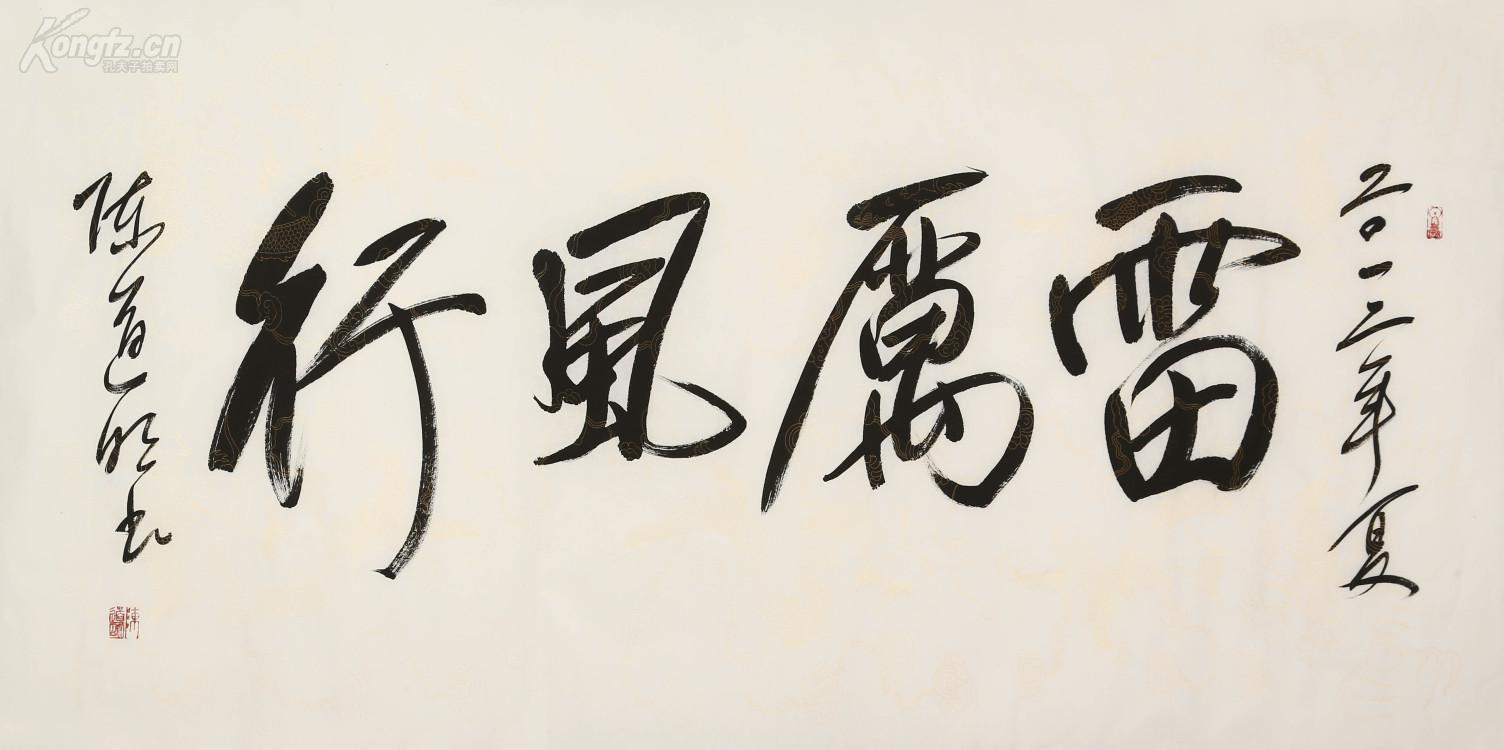 二〇一三年夏
雷厲風行
陈道明书
陳道明
Kongfz.cn
孔夫子拍卖网